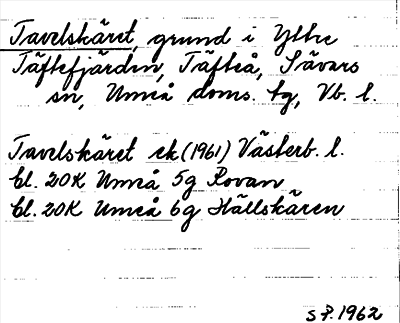 Tavelskäret, grund i Yttre
Täftefjärden, Täfteå, Sävars
sn, Umeå doms. tg, Vb. l.
Tavelskäret ek (1961) Västerb. l.
bl. 20K Umeå 5g Rovan
bl. 20K Umeå 6g Hällskären
S P. 1962